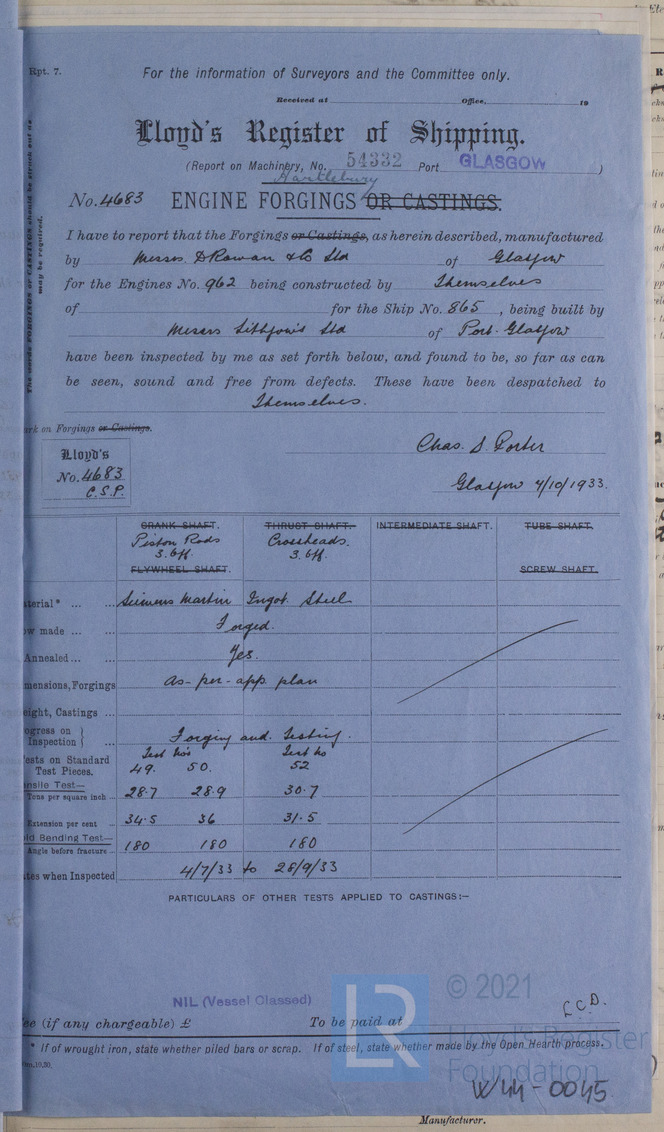 Rpt. 7.
For the information of Surveyors and the Committee only.
Received at Office, 19
Lloyd's Register of Shipping.
(Report on Machinery, No. 54332 Port GLASGOW )
Hartlebury
No. 4683 ENGINE FORGINGS OR CASTINGS.
I have to report that the Forgings or Castings, as herein described, manufactured
by Messrs D Rowan & Co Ltd of Glasgow
for the Engines No. 962 being constructed by Themselves
of for the Ship No. 865 , being built by
Messrs Lithgow's Ltd of Port-Glasgow
have been inspected by me as set forth below, and found to be, so far as can
be seen, sound and free from defects. These have been despatched to
Themselves.
The words FORGINGS or CASTINGS should be struck out as
may be required.
ark on Forgings or Castings.
Lloyd's
No. 4683
C.S.P.
Chas. S. Porter
Glasgow 4/10/1933.
CRANK SHAFT. THRUST SHAFT. INTERMEDIATE SHAFT. TUBE SHAFT.
Piston Rods Crossheads.
3. off. 3. off.
FLYWHEEL SHAFT. SCREW SHAFT.
aterial* ... ... Siemens Martin Ingot Steel
ow made ... ... Forged.
Annealed ... ... Yes.
mensions, Forgings As-per-app plan
eight, Castings ...
ogress on
Inspection ... Forging and Testing.
ests on Standard Test No's Test No
Test Pieces. 49. 50. 52
nsile Test—
Tons per square inch 28.7 28.9 30.7
Extension per cent 34.5 36 31.5
ld Bending Test—
Angle before fracture 180 180 180
tes when Inspected 4/7/33 to 28/9/33
PARTICULARS OF OTHER TESTS APPLIED TO CASTINGS:—
NIL (Vessel Classed)
ee (if any chargeable) £ To be paid at
* If of wrought iron, state whether piled bars or scrap. If of steel, state whether made by the Open Hearth process.
LR
© 2021
Lloyd's Register
Foundation
W44-0045
Manufacturer.